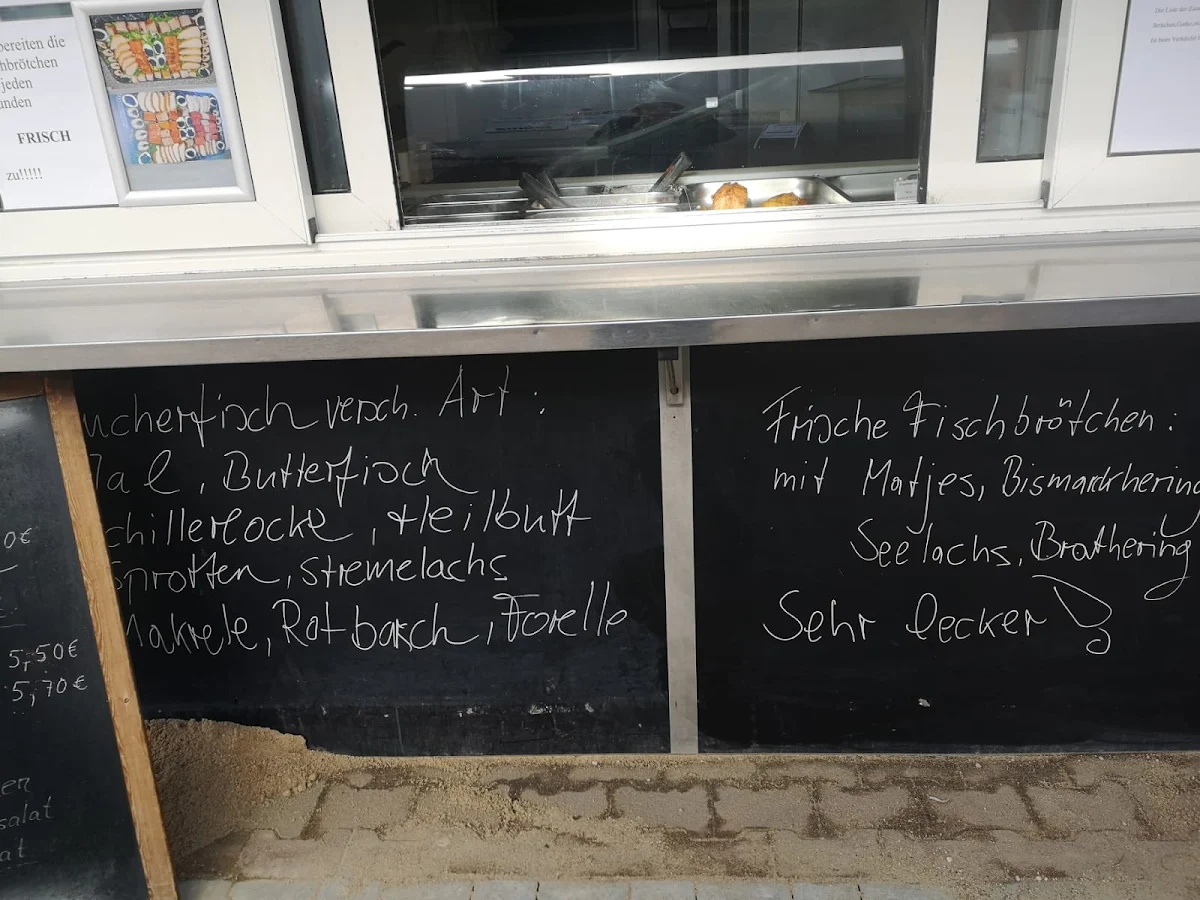 bereiten die
hbrötchen
jeden
unden
FRISCH
zu!!!!!
ucherfisch versch. Art:
al, Butterfisch
chillerlocke, Heilbutt
Sprotten, Stremelachs
Makrele, Rotbarsch, Forelle
Frische Fischbrötchen:
mit Matjes, Bismarkhering
Seelachs, Brathering
Sehr lecker!
0€
5,50€
5,70€
en
salat
at